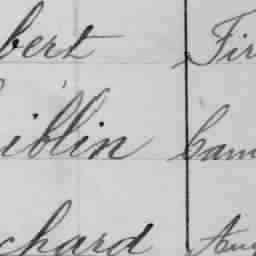 bert Fir
iblin Cam
chard Aug